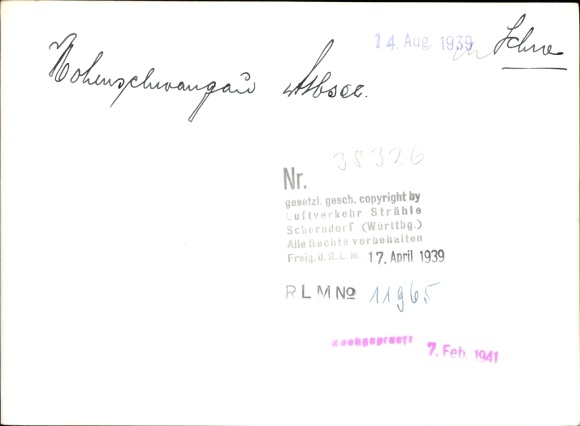 14. Aug. 1939
Hohenschwangau
Nr. 38326
gesetzl. gesch. copyright by
Luftverkehr Strähle
Schorndorf (Württbg.)
Alle Rechte vorbehalten
Freig. d. R.L.M. 17. April 1939
R.L.M № 11965
Nachgeprüft 7. Feb. 1941